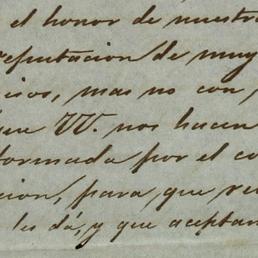 el honor de nuestra
reputacion de muy
mas no con
que VV. nos hacen
formada por el co
cion, para que
les dá, y que aceptan